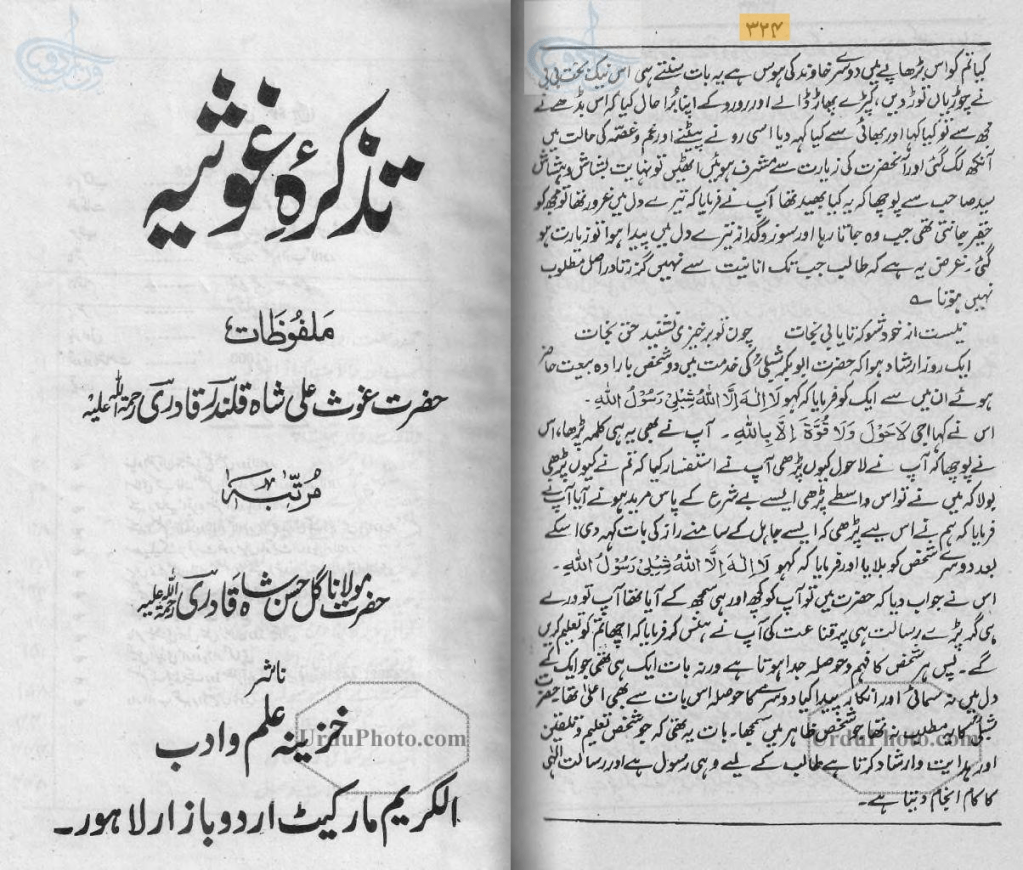 ۳۲۴
کیا تم کو اس بڑھاپے میں دوسرے خاوند کی ہوس ہے یہ بات سنتے ہی اس نیک بخت بی بی
نے چوڑیاں توڑ دیں، کپڑے پھاڑ ڈالے اور رو رو کے اپنا بُرا حال کیا کہ اس بڈھے نے
مجھ سے تو کیا کہا اور بھائی سے کیا کہہ دیا اسی رونے پیٹنے اور غم و غصہ کی حالت میں
آنکھ لگ گئی اور آنحضرت کی زیارت سے مشرف ہوئیں اٹھیں تو نہایت بشاش و ہشاش
سید صاحب سے پوچھا کہ یہ کیا بھید تھا آپ نے فرمایا کہ تیرے دل میں غرور تھا تو مجھ کو
حقیر جانتی تھی جب وہ جاتا رہا اور سوز و گداز تیرے دل میں پیدا ہوا تو زیارت ہو
گئی۔ غرض یہ ہے کہ طالب جب تک انانیت سے نہیں گزرتا در اصل مطلوب
نہیں ہوتا ؎
نیست از خود شو کہ تا یابی نجات چوں تو برخیزی نشیند حق بجات
ایک روز ارشاد ہوا کہ حضرت ابوبکر شبلیؒ کی خدمت میں دو شخص بارادہ بیعت حاضر
ہوئے ان میں سے ایک کو فرمایا کہ کہو لَا اِلٰهَ اِلَّا اللهُ شِبْلِیْ رَسُوْلُ اللهِ۔
اس نے کہا اجی لَاحَوْلَ وَلَا قُوَّةَ اِلَّا بِاللهِ۔ آپ نے بھی یہ ہی کلمہ پڑھا، اس
نے پوچھا کہ آپ نے لاحول کیوں پڑھی آپ نے استفسار کیا کہ تم نے کیوں پڑھی
بولا کہ میں نے تو اس واسطے پڑھی ایسے بے شرع کے پاس مرید ہونے آیا آپ نے
فرمایا کہ ہم نے اس لیے پڑھی کہ ایسے جاہل کے سامنے راز کی بات کہہ دی اسکے
بعد دوسرے شخص کو بلایا اور فرمایا کہ کہو لَا اِلٰهَ اِلَّا اللهُ شِبْلِیْ رَسُوْلُ اللهِ۔
اس نے جواب دیا کہ حضرت میں تو آپ کو کچھ اور ہی سمجھ کے آیا تھا آپ تو ورے
ہی گر پڑے رسالت ہی پہ قناعت کی آپ نے ہنس کو فرمایا کہ اچھا تم کو تعلیم کریں
گے۔ پس ہر شخص کا فہم و حوصلہ جدا ہوتا ہے ورنہ بات ایک ہی تھی جو ایک کے
دل میں نہ سمائی اور انکار پیدا کیا دوسرے کا حوصلہ اس بات سے بھی اعلیٰ تھا حضرت
شبلیؒ کا یہ مطلب نہ تھا جو شخص ظاہر میں سمجھا۔ بات یہ تھی کہ جو شخص تعلیم و تلقین
اور ہدایت و ارشاد کرتا ہے طالب کے لیے وہی رسول ہے اور رسالت الٰہی
کا کام انجام دیتا ہے۔
تذکرۂ غوثیہ
ملفوظات
حضرت غوث علی شاہ قلندر قادری رحمۃ اللہ علیہ
مرتبہ
حضرت مولانا گل حسن شاہ قادری رحمۃ اللہ علیہ
ناشر
خزینہ علم و ادب
الکریم مارکیٹ اردو بازار لاہور۔
UrduPhoto.com
UrduPhoto.com